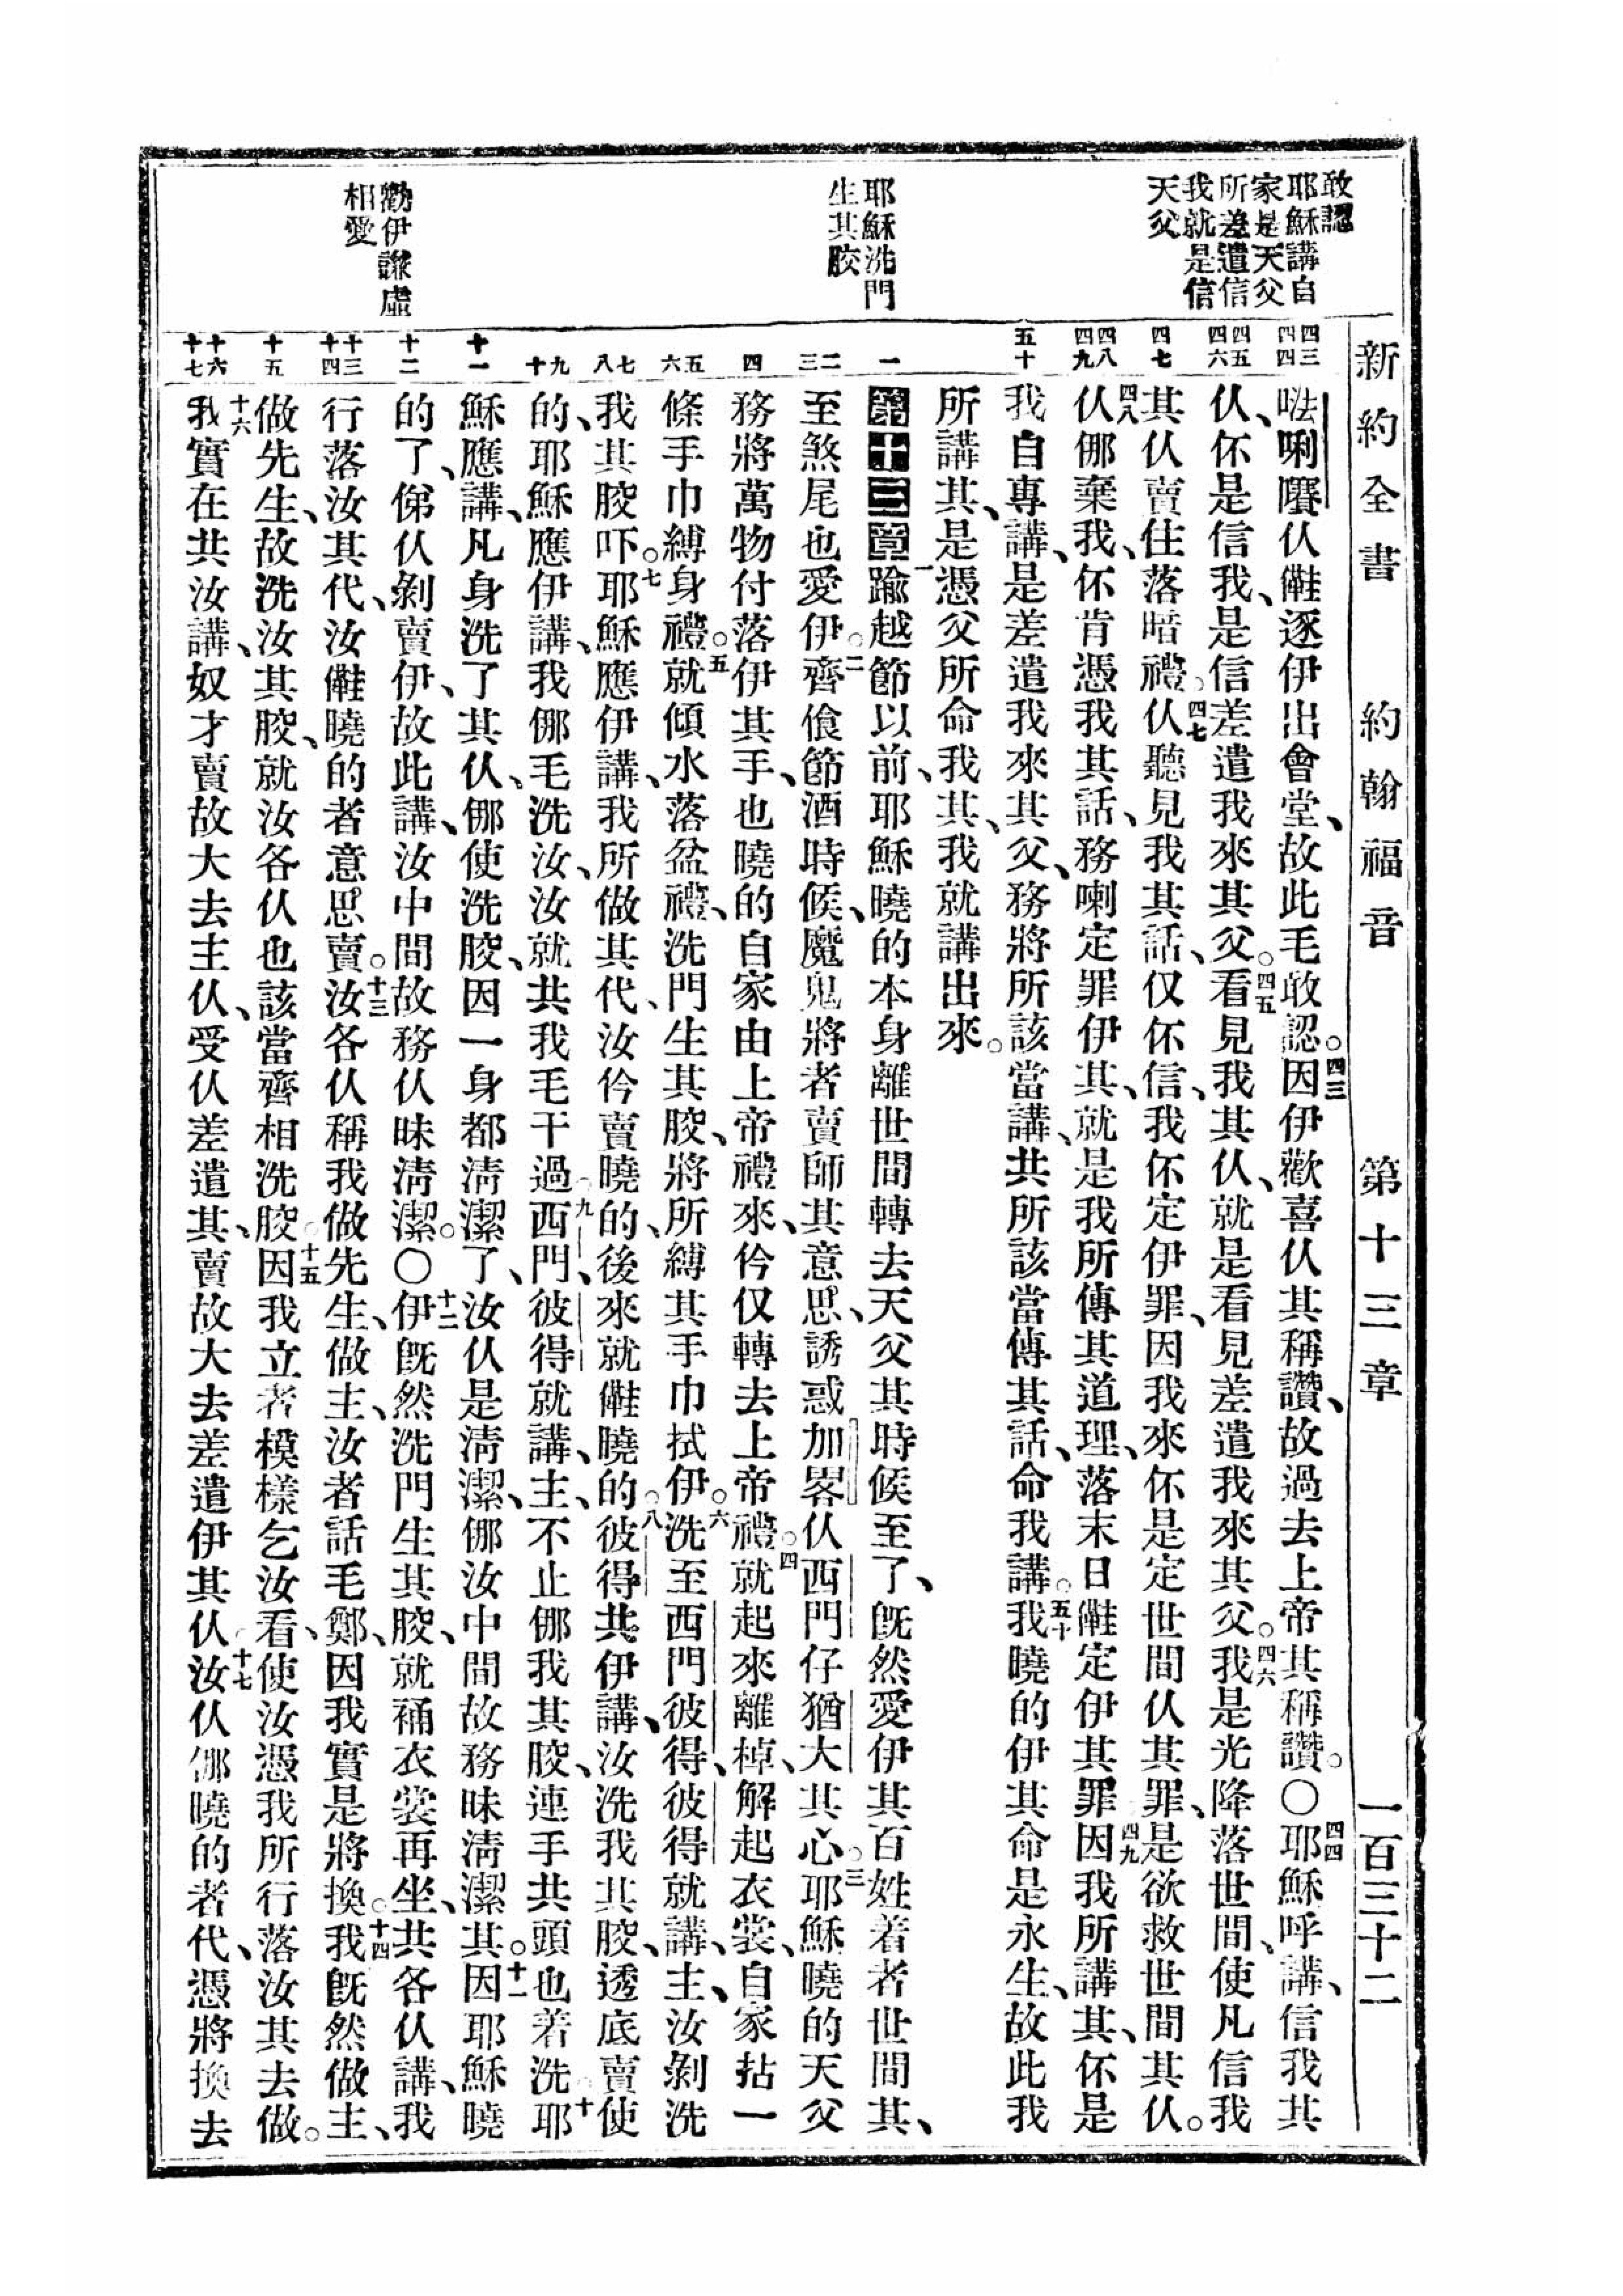 新約全書 約翰福音 第十三章 一百三十二
敢認
耶穌講自
家是天父
所差遣信
我就是信
天父
耶穌洗門
生其骹
勸伊謙虛
相愛
四三
四四
四五
四六
四七
四八
四九
五十
一
二
三
四
五
六
七
八
九
十
十一
十二
十三
十四
十五
十六
十七
㗙唎㘔仈𫢗逐伊出會堂、故此毛敢認。四三因伊歡喜仈其稱讚、故過去上帝其稱讚。〇四四耶穌呼講、信我其
仈、伓是信我、是信差遣我來其父。四五看見我其仈、就是看見差遣我來其父。四六我是光降落世間、使凡信我
其仈賣住落暗禮。四七仈聽見我其話、仅伓信、我伓定伊罪、因我來伓是定世間仈其罪、是欲救世間其仈。
四八仈㑚棄我、伓肯憑我其話、務喇定罪伊其、就是我所傳其道理、落末日𫢗定伊其罪四九因我所講其、伓是
我自專講、是差遣我來其父、務將所該當講、共所該當傳其話、命我講。五十我曉的伊其命是永生、故此我
所講其、是憑父所命我其、我就講出來。
第十三章 一踰越節以前、耶穌曉的本身離世間轉去天父其時候至了、旣然愛伊其百姓着者世間其、
至煞尾也愛伊。二齊飡節酒時候、魔鬼將者賣師其意思、誘惑加畧仈西門仔猶大其心。三耶穌曉的天父
務將萬物付落伊其手、也曉的自家由上帝禮來、仱仅轉去上帝禮。四就起來離棹、解起衣裳、自家拈一
條手巾縛身禮。五就傾水落盆禮、洗門生其骹、將所縛其手巾拭伊。六洗至西門彼得、彼得就講、主、汝剝洗
我其骹吓。七耶穌應伊講、我所做其代、汝仱賣曉的、後來就𫢗曉的。八彼得共伊講、汝洗我其骹、透底賣使
的、耶穌應伊講、我㑚毛洗汝、汝就共我毛干過九西門、彼得就講、主、不止㑚我其骹、連手共頭也着洗。十耶
穌應講、凡身洗了其仈、㑚使洗骹、因一身都淸潔了、汝仈是淸潔、㑚汝中間故務昧淸潔其。十一因耶穌曉
的了、㑆仈剝賣伊、故此講、汝中間故務仈昧淸潔。〇十二伊旣然洗門生其骹、就補衣裳再坐、共各仈講、我
行落汝其代、汝𫢗曉的者意思賣。十三汝各仈稱我做先生、做主、汝者話毛鄭、因我實是將換。十四我旣然做主、
做先生、故洗汝其骹、就汝各仈也該當齊相洗骹。十五因我立者模樣乞汝看、使汝憑我所行落汝其去做。
十六我實在共汝講、奴才賣故大去主仈、受仈差遣其、賣故大去差遣伊其仈。十七汝仈㑚曉的者代、憑將換去